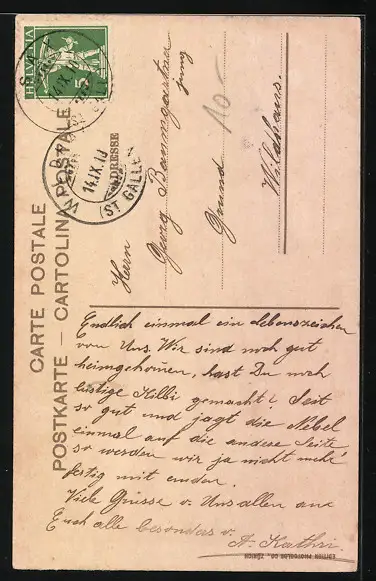 CARTE POSTALE
POSTKARTE — CARTOLINA POSTALE
HELVETIA
5
14.IX.10
(ST GALLEN)
ADRESSE
Herrn
Georg Baumgartner
jung
Grund
Wildhaus.
10.-
Endlich einmal ein Lebenszeichen
von Uns. Wir sind noch gut
heimgekomen, hast Du noch
lustige Kilbi gemacht? Seit
so gut und jagt die Nebel
einmal auf die andere Seite
so werden wir ja nicht mehr
fertig mit
Viele Grüsse v. Uns allen an
Euch alle besonders v.
A. Kathri.
EDITION PHOTOGLOB CO., ZÜRICH